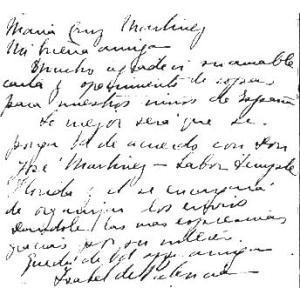 Maria Cruz Martinez
Mi buena amiga
Mucho agradecí su amable
carta y ofrecimiento de ropas
para nuestros niños de España
Lo mejor será que se
ponga Vd de acuerdo con Don
José Martinez - Labor Temple
Florida y el se encargará
de organizar los envios
dandole las mas expresivas
gracias por su interés
Queda de Vd affma amiga
Isabel de Palencia